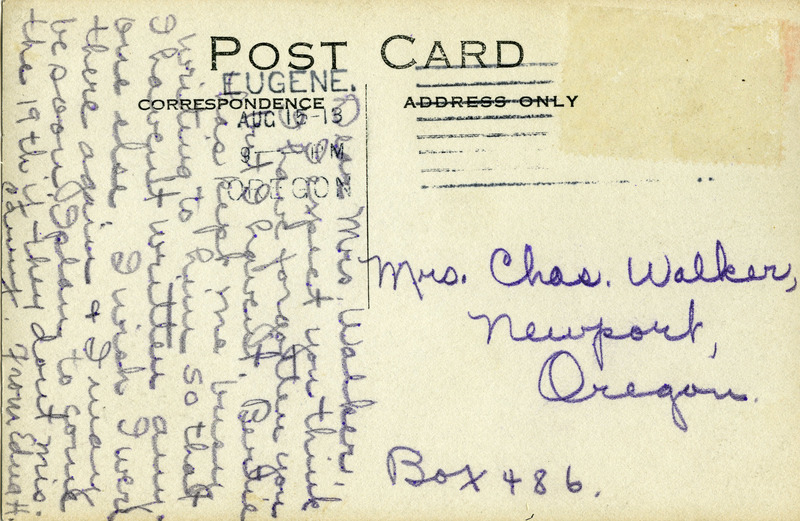 POST CARD
CORRESPONDENCE
ADDRESS ONLY
EUGENE.
AUG 15-13
OREGON
Dear Mrs. Walker,
I expect you think
I have forgotten you
but I haven't. Bertie
has kept me busy
writing to him so that
I haven't written any-
one else. I wish I were
there again & I may
be soon. I plan to come
the 19th if they dont mis-
From Edna H.
Mrs. Chas. Walker,
Newport,
Oregon.
Box 486.